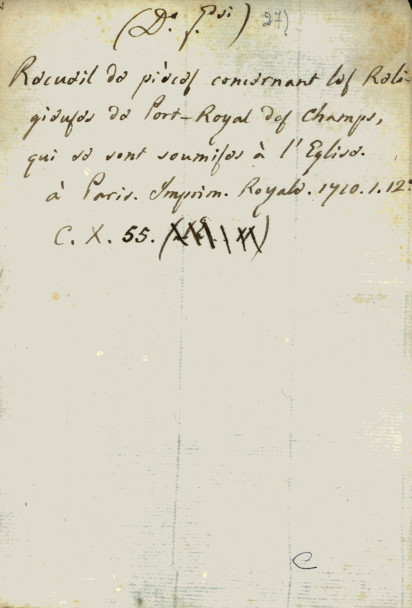 (D.ª J.ᵉˢⁱ) 27)
Recueil de pièces concernant les Reli-
gieuses de Port-Royal des Champs,
qui se sont soumises à l'Eglise.
à Paris. Imprim. Royale. 1710. 1. 12.º
C. X. 55.
C